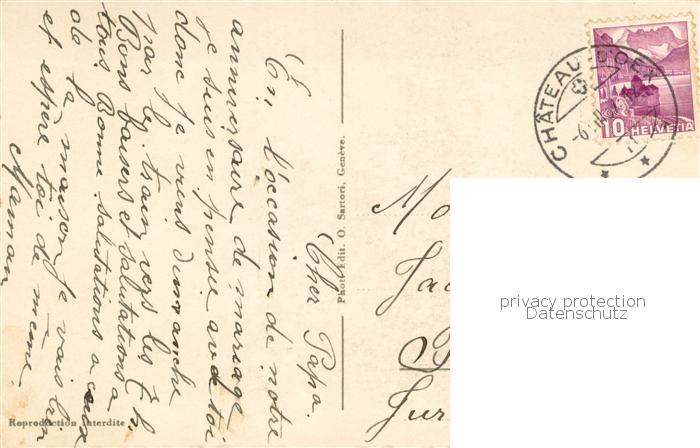 Cher Papa.
En l'occasion de notre
anniversaire de mariage
je suis en pensée avec toi
donc je viens dimanche
par le train vers les 5 h.
Bons baisers et salutations a
tous Bonne salutations a ceux
de la maison je vais bien
et espère toi de même.
Maman
Photo Edit. O. Sartori, Genève.
Reproduction Interdite
CHÂTEAU-D'OEX
10 HELVETIA
Jur
privacy protection
Datenschutz